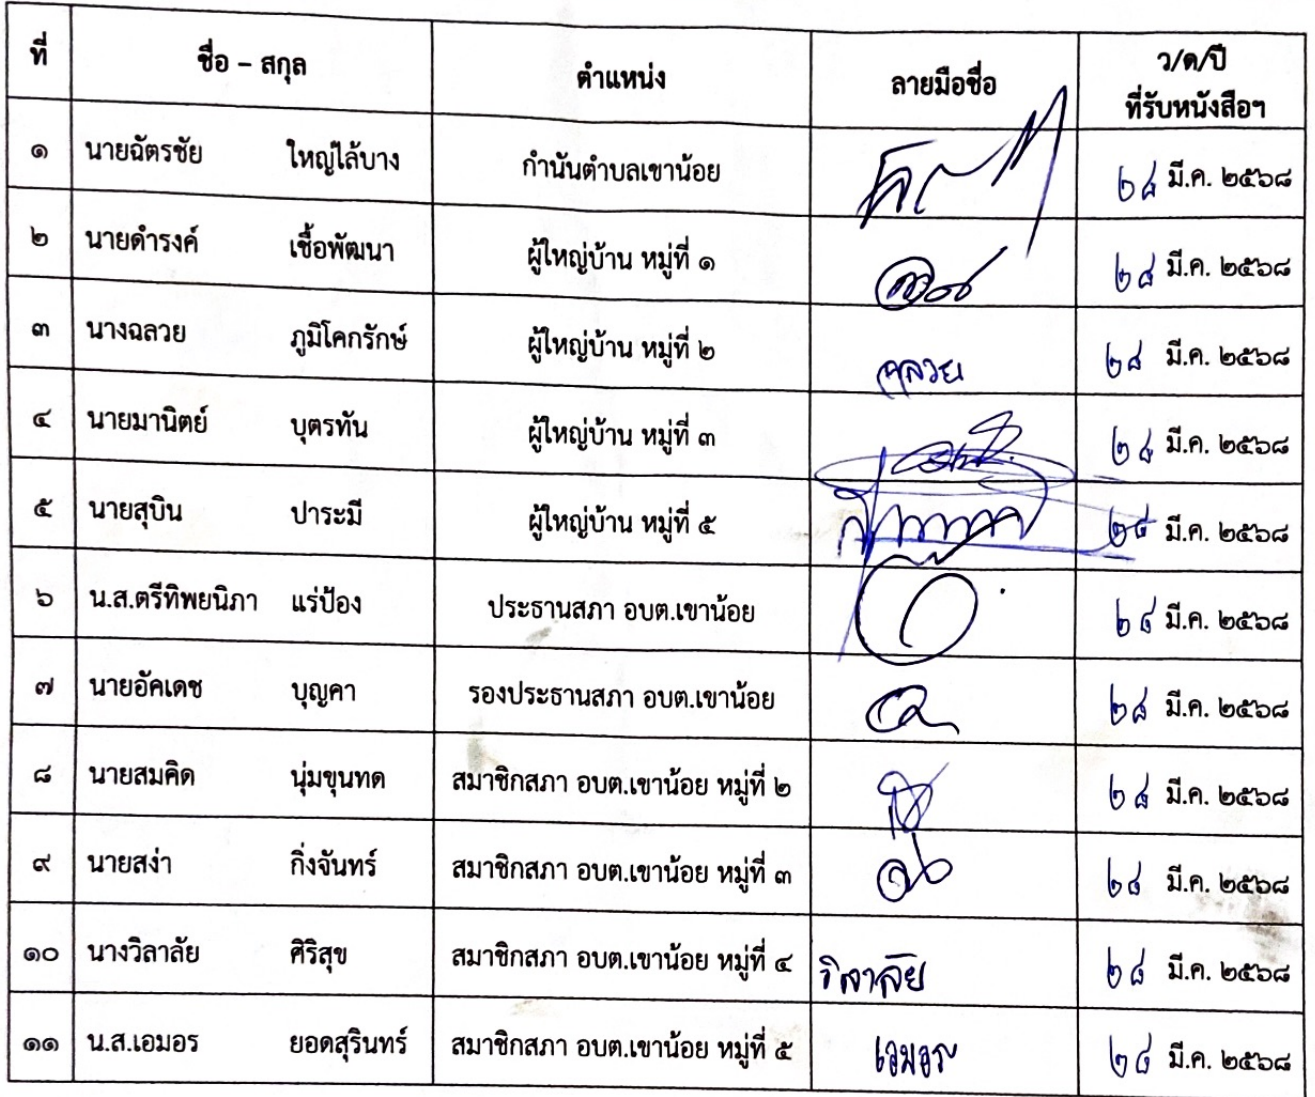 ที่ ชื่อ – สกุล ตำแหน่ง ลายมือชื่อ ว/ด/ปี
ที่รับหนังสือฯ
๑ นายฉัตรชัย ใหญ่ไล้บาง กำนันตำบลเขาน้อย ๒๘ มี.ค. ๒๕๖๘
๒ นายดำรงค์ เชื้อพัฒนา ผู้ใหญ่บ้าน หมู่ที่ ๑ ๒๘ มี.ค. ๒๕๖๘
๓ นางฉลวย ภูมิโคกรักษ์ ผู้ใหญ่บ้าน หมู่ที่ ๒ ฉลวย ๒๘ มี.ค. ๒๕๖๘
๔ นายมานิตย์ บุตรทัน ผู้ใหญ่บ้าน หมู่ที่ ๓ ๒๘ มี.ค. ๒๕๖๘
๕ นายสุบิน ปาระมี ผู้ใหญ่บ้าน หมู่ที่ ๕ ๒๘ มี.ค. ๒๕๖๘
๖ น.ส.ตรีทิพยนิภา แร่ป้อง ประธานสภา อบต.เขาน้อย ๒๘ มี.ค. ๒๕๖๘
๗ นายอัคเดช บุญคา รองประธานสภา อบต.เขาน้อย ๒๘ มี.ค. ๒๕๖๘
๘ นายสมคิด นุ่มขุนทด สมาชิกสภา อบต.เขาน้อย หมู่ที่ ๒ ๒๘ มี.ค. ๒๕๖๘
๙ นายสง่า กิ่งจันทร์ สมาชิกสภา อบต.เขาน้อย หมู่ที่ ๓ ๒๘ มี.ค. ๒๕๖๘
๑๐ นางวิลาลัย ศิริสุข สมาชิกสภา อบต.เขาน้อย หมู่ที่ ๔ วิลาลัย ๒๘ มี.ค. ๒๕๖๘
๑๑ น.ส.เอมอร ยอดสุรินทร์ สมาชิกสภา อบต.เขาน้อย หมู่ที่ ๕ เอมอร ๒๘ มี.ค. ๒๕๖๘